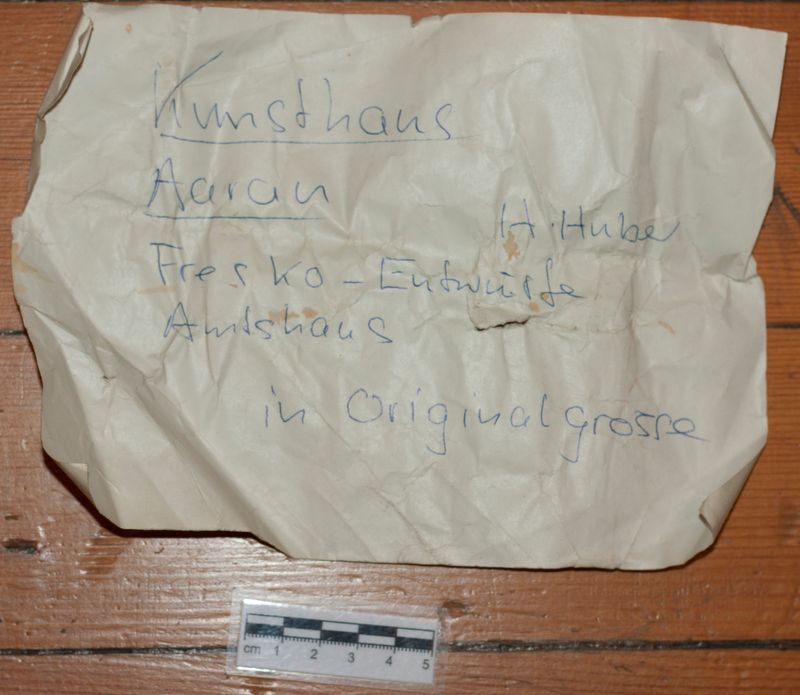 Kunsthaus
Aarau
H. Huber
Fresko - Entwürfe
Amtshaus
in Originalgrösse
cm 1 2 3 4 5